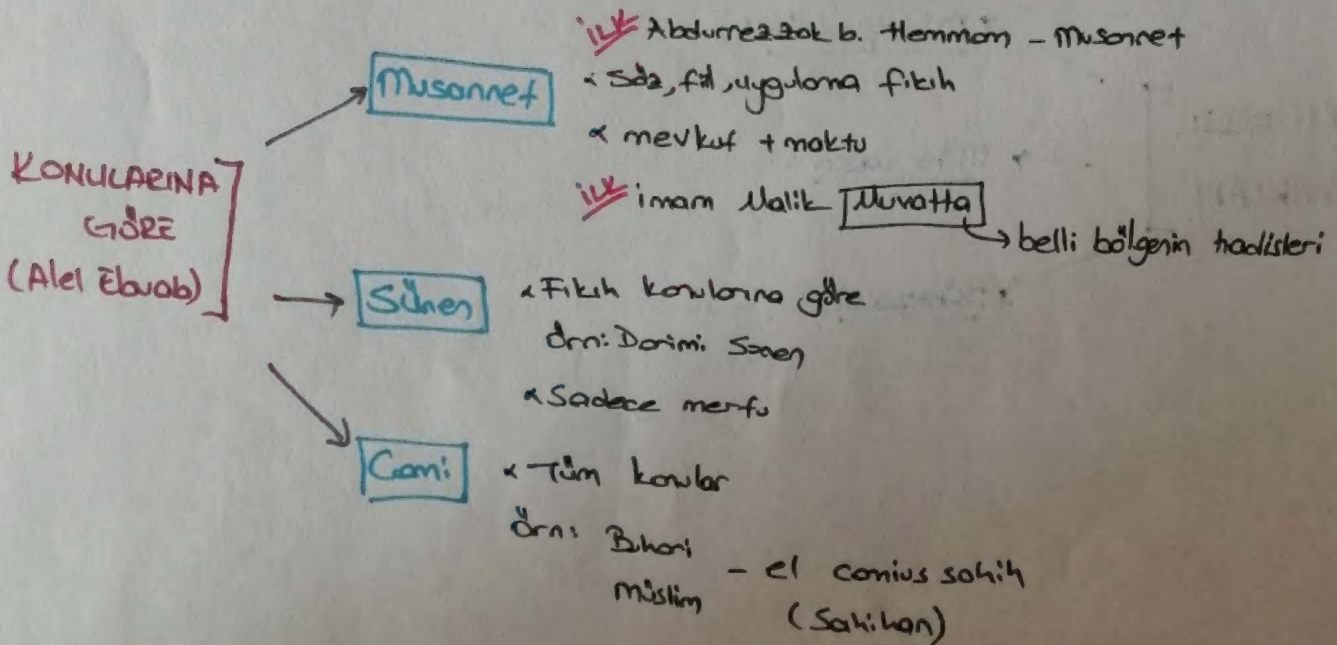 KONULARINA
GÖRE
(Alel Ebvab)
Musannef
İLK Abdurrezzak b. Hemmam - Musannef
Söz, fiil, uygulama fıkıh
mevkuf + maktu
İLK imam Malik Muvatta
belli bölgenin hadisleri
Sünen
Fıkıh konularına göre
Örn: Darimi Sünen
Sadece merfu
Cami
Tüm konular
Örn: Buhari
müslim - el camius sahih
(Sahihan)